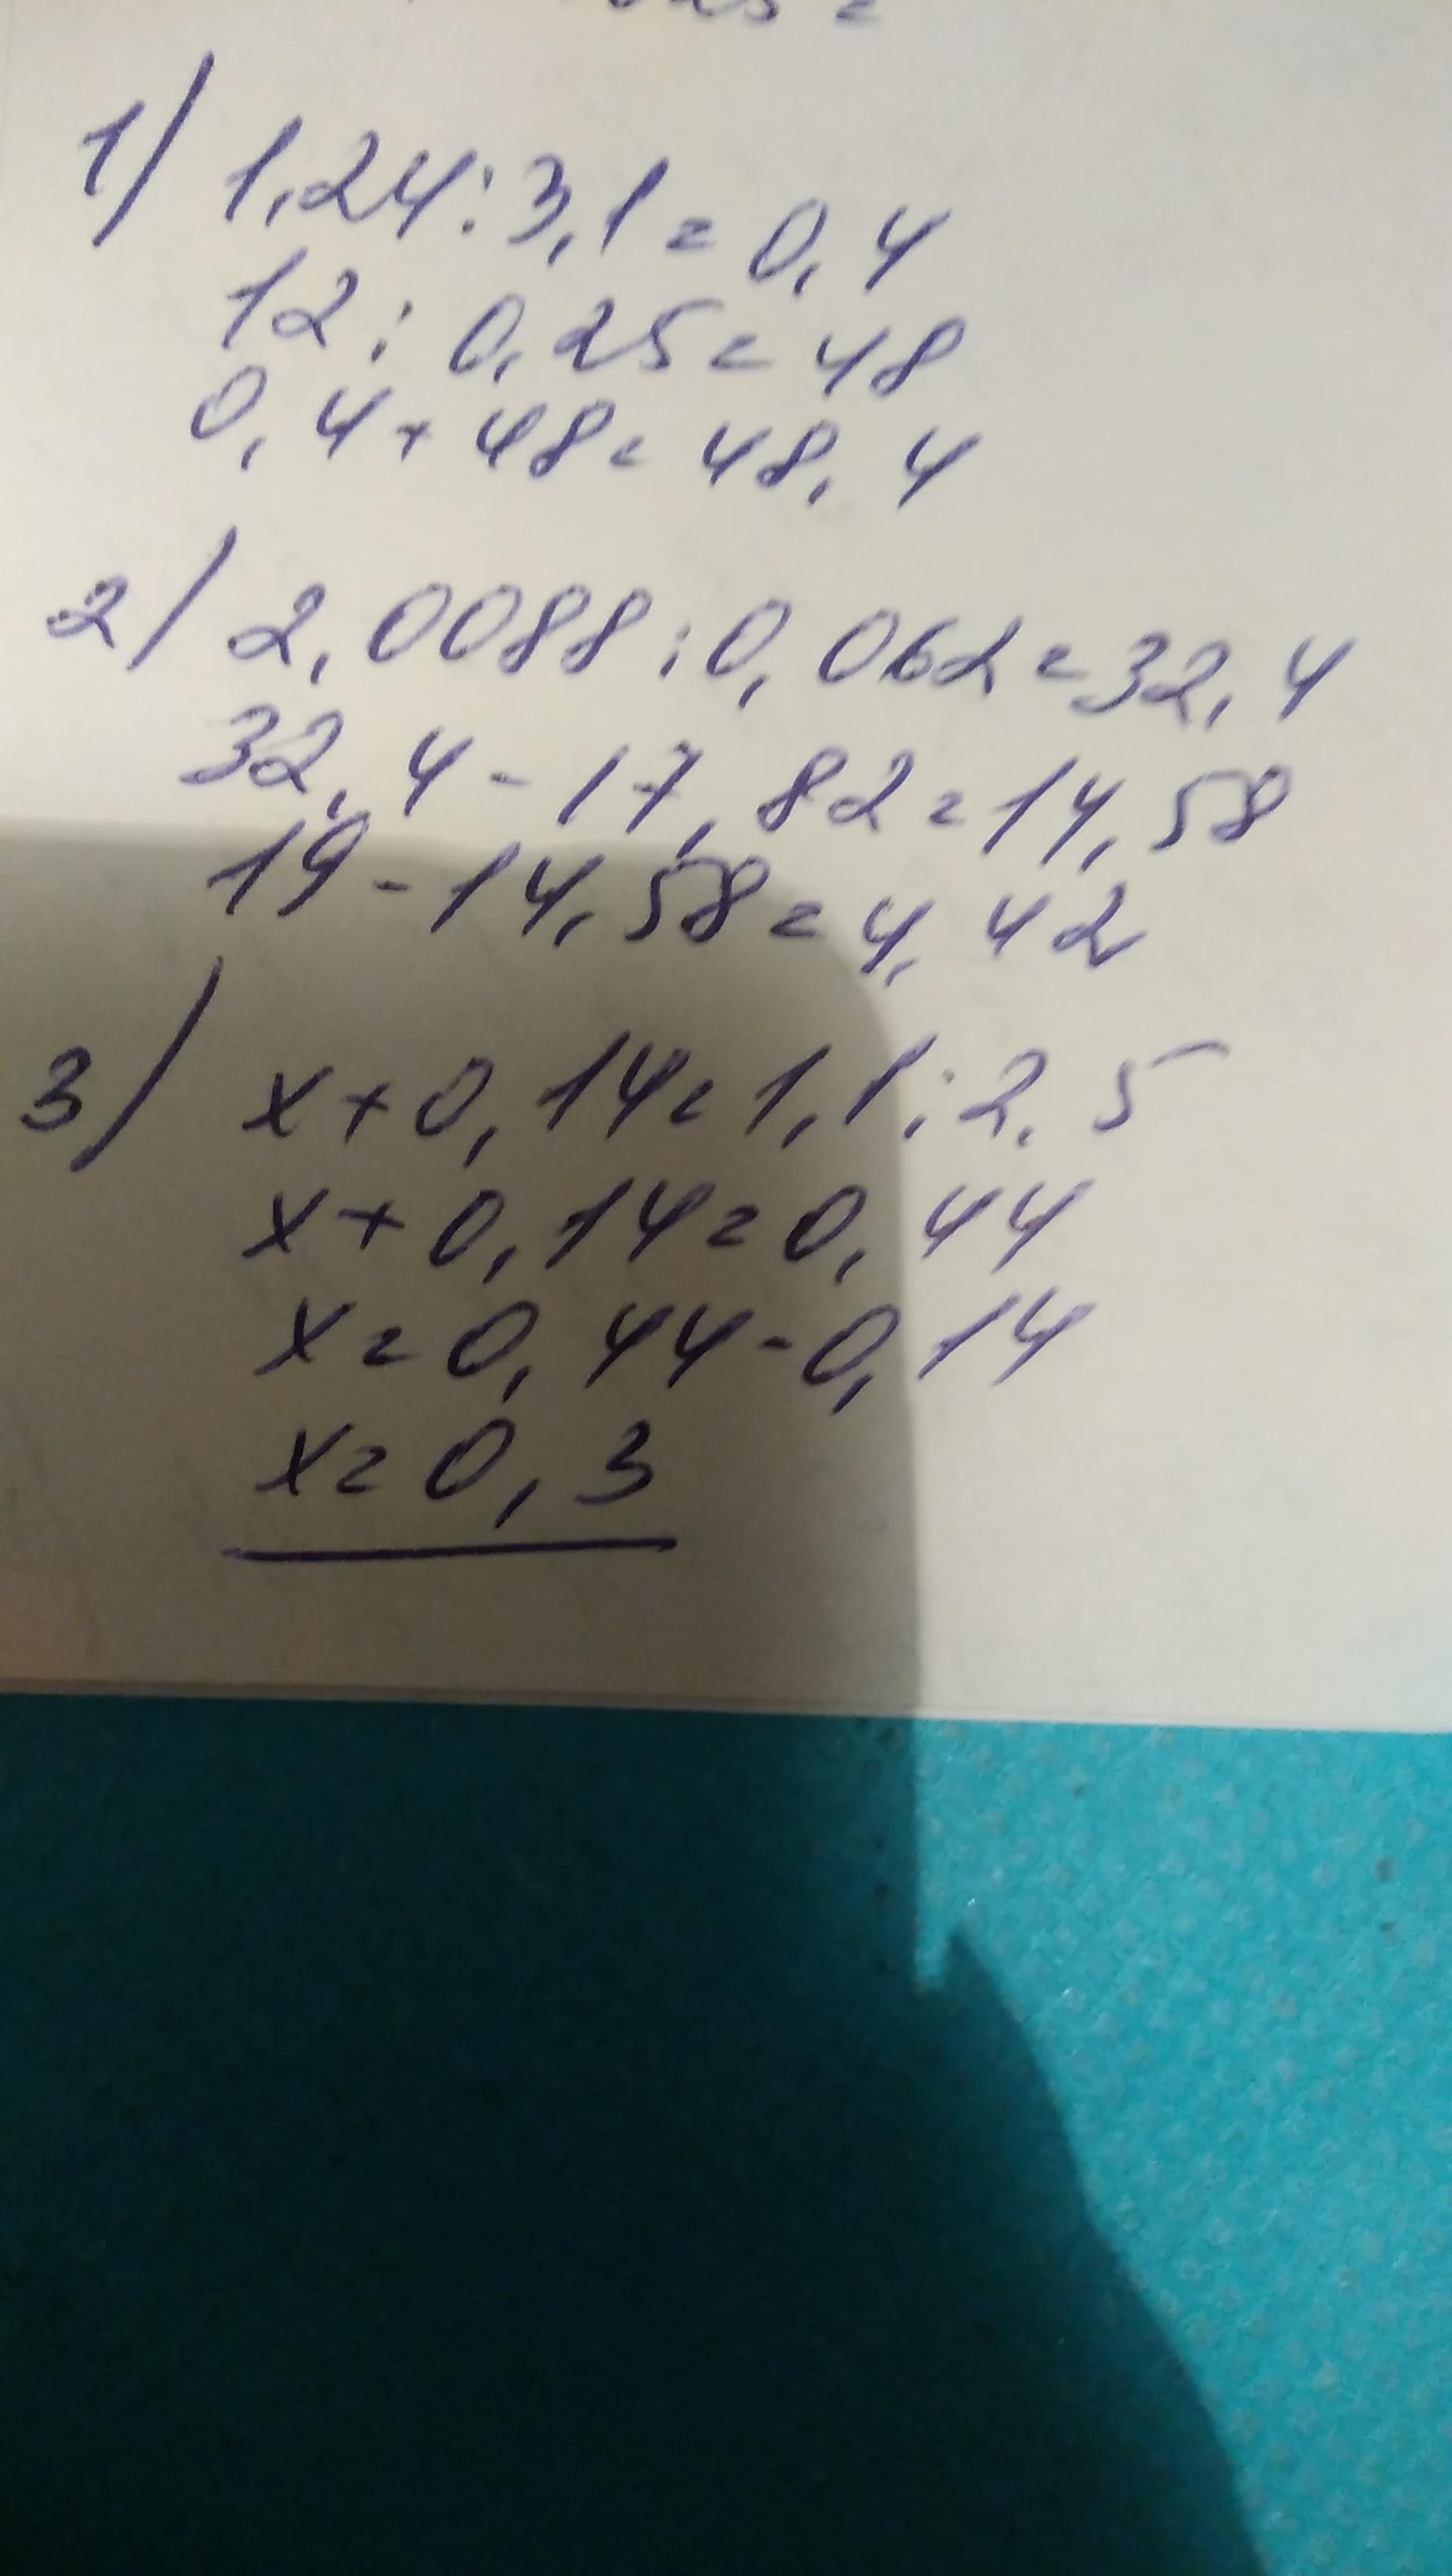 1) 1,24:3,1=0,4
12:0,25=48
0,4+48=48,4
2) 2,0088:0,062=32,4
32,4-17,82=14,58
19-14,58=4,42
3) x+0,14=1,1:2,5
x+0,14=0,44
x=0,44-0,14
x=0,3